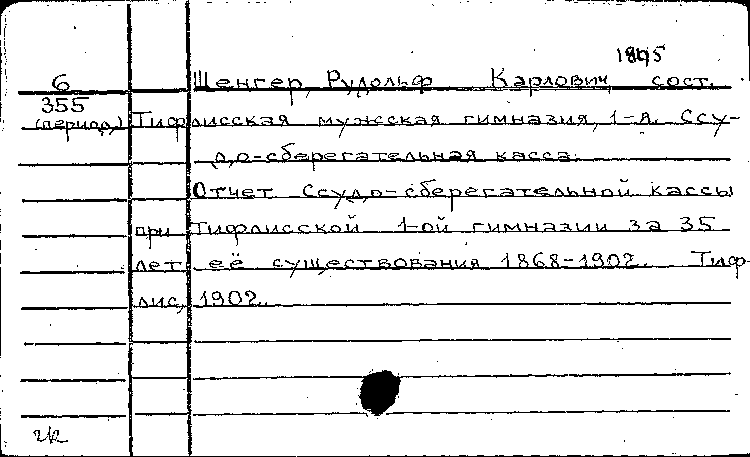 1845
6 Шенгер, Рудольф Карлович, сост.
355
(период.) Тифлисская мужская гимназия, 1-я. Ссу-
до-сберегательная касса.
Отчет Ссудо-сберегательной кассы
при Тифлисской 1-ой гимназии за 35
лет её существования 1868-1902. Тиф-
лис, 1902.